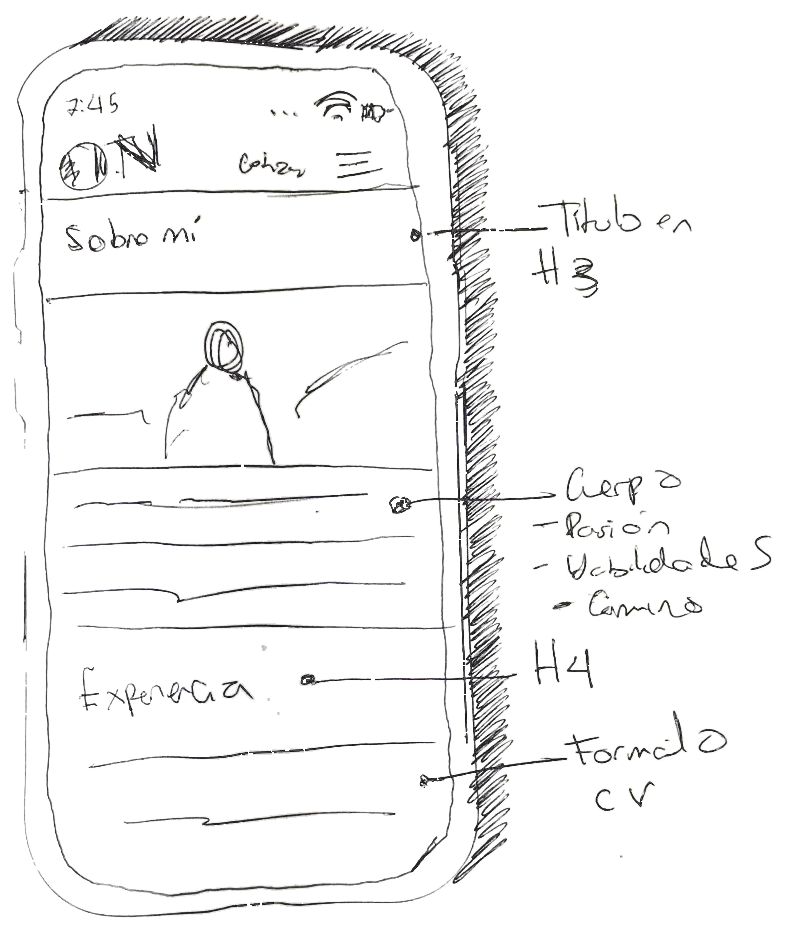 7:45
N
Cotizar
Sobre mí
Título en
H3
Cuerpo
- Pasión
- Habilidades
- Camino
Experiencia
H4
Formato
CV